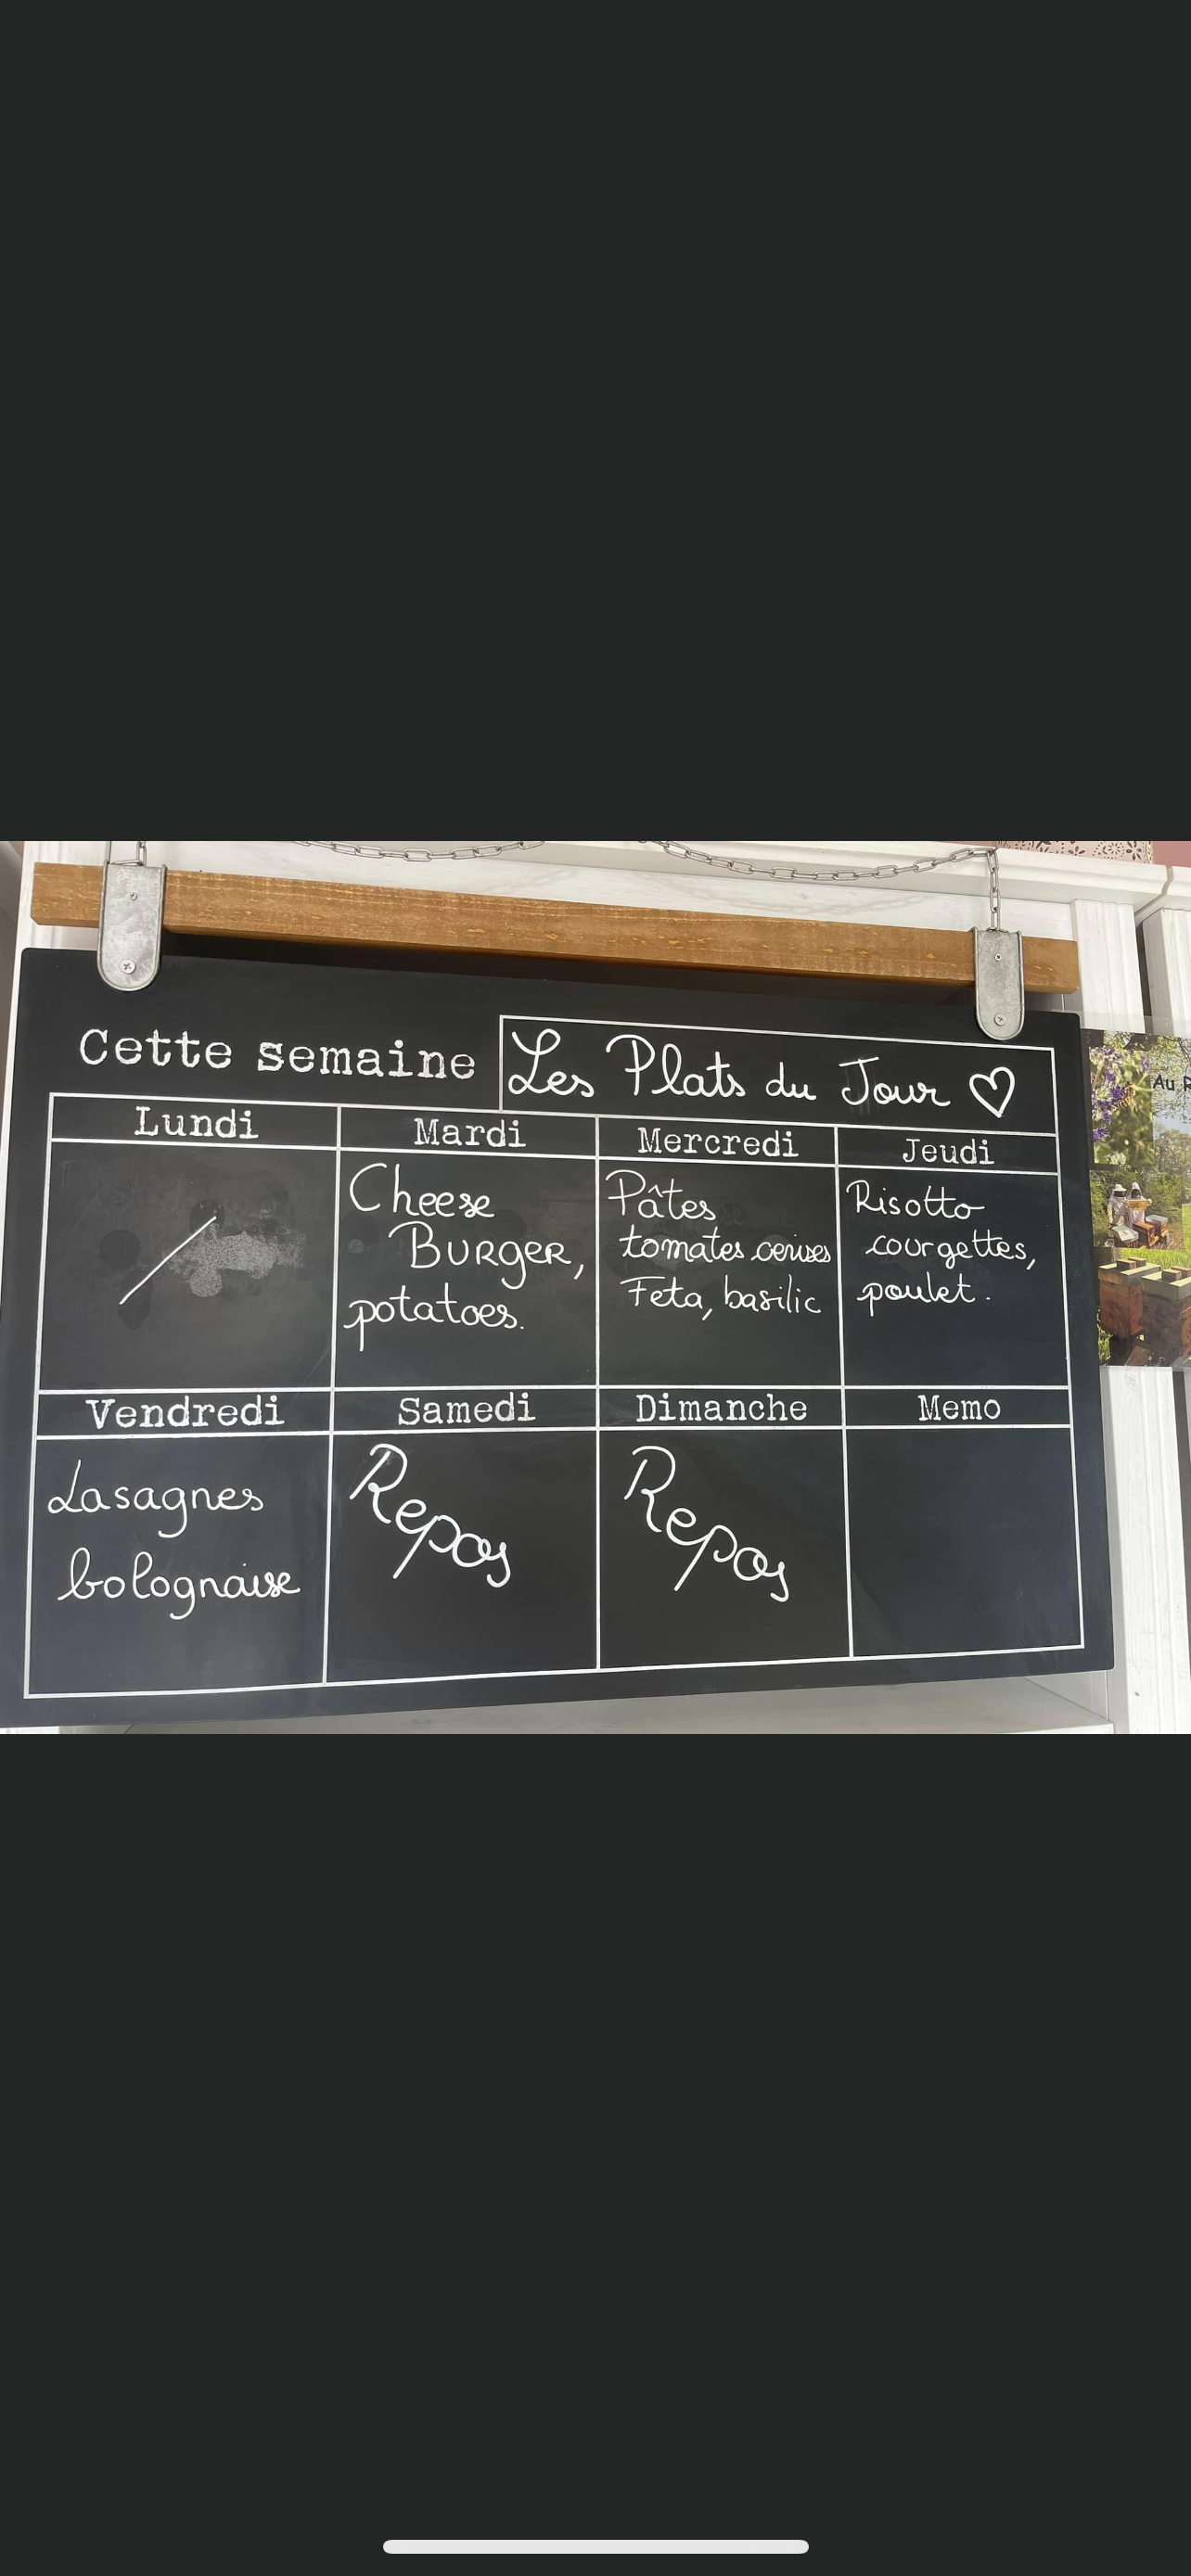 Cette semaine
Les Plats du Jour
Lundi
Mardi
Mercredi
Jeudi
Cheese
Burger,
potatoes.
Pâtes
tomates cerises
Feta, basilic
Risotto
courgettes,
poulet.
Vendredi
Samedi
Dimanche
Memo
Lasagnes
bolognaise
Repos
Repos
Au